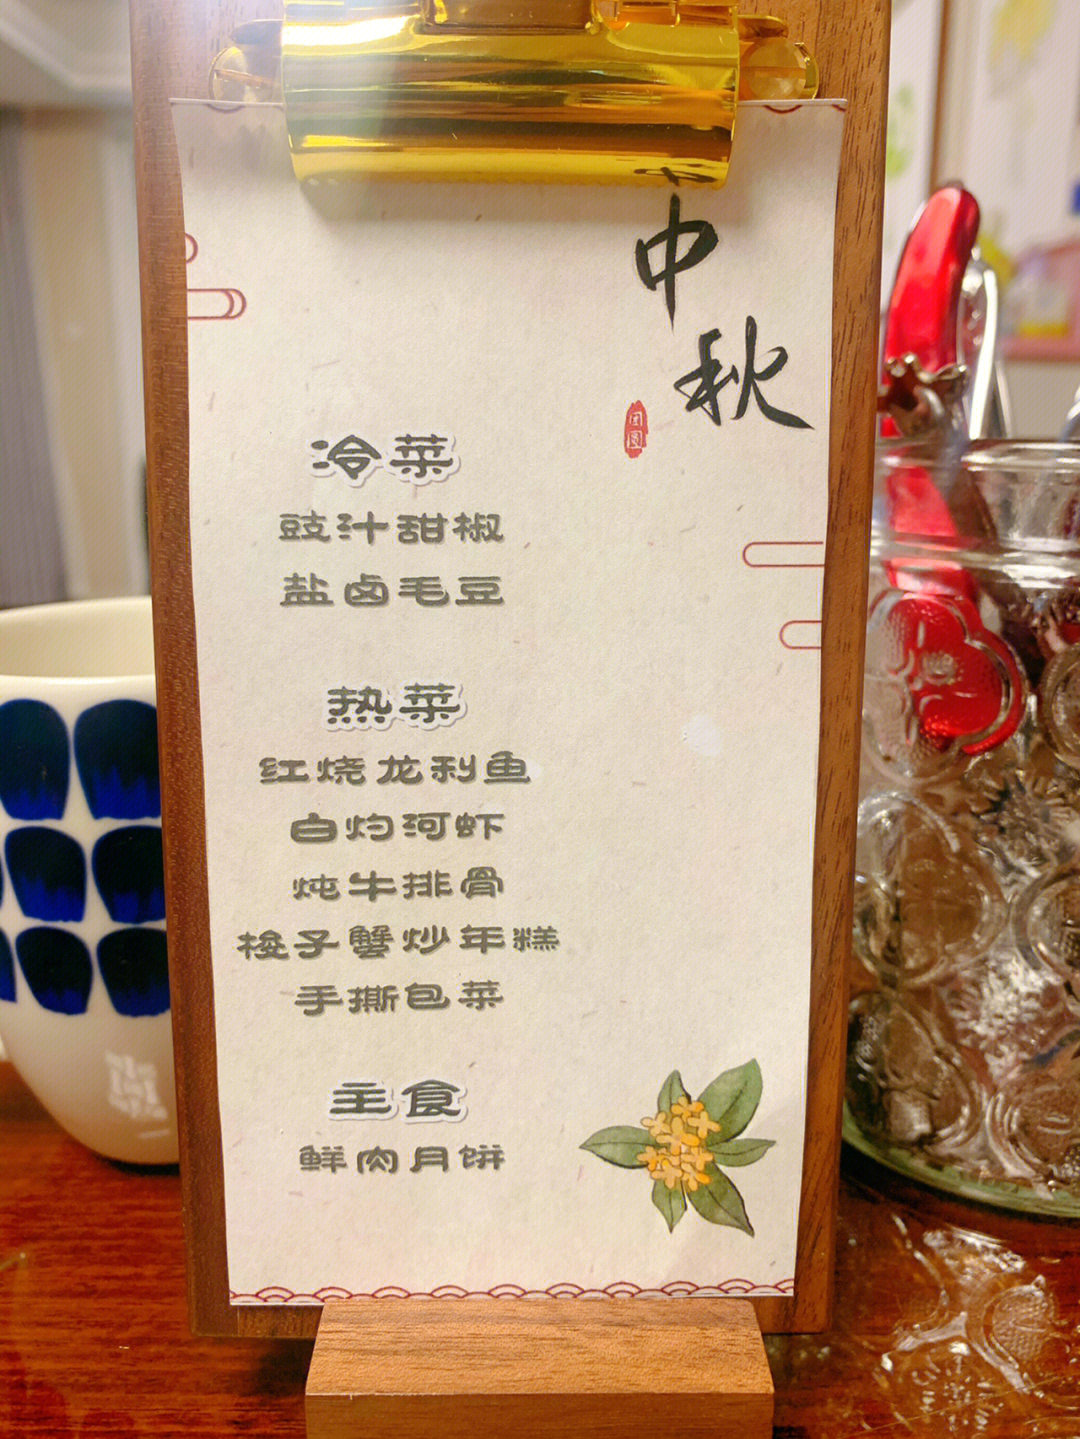 中秋
团圆
冷菜
豉汁甜椒
盐卤毛豆
热菜
红烧龙利鱼
白灼河虾
炖牛排骨
梭子蟹炒年糕
手撕包菜
主食
鲜肉月饼